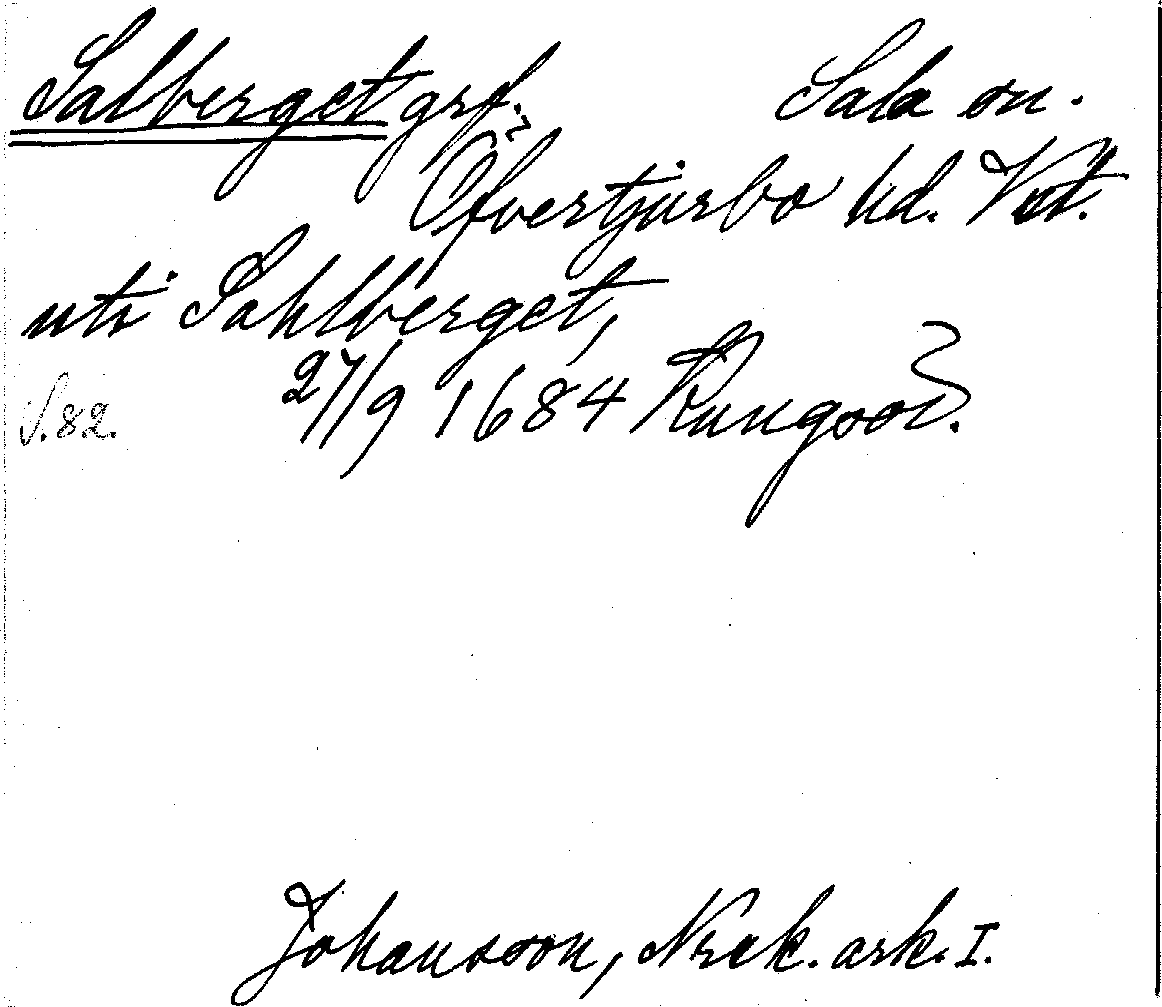 Salberget grf. Sala sn.
Öfvertjurbo hd. Vstm.
uti Sahlberget,
S. 82. 27/9 1684 Kungsör.
Johansson, Norak. ark. I.